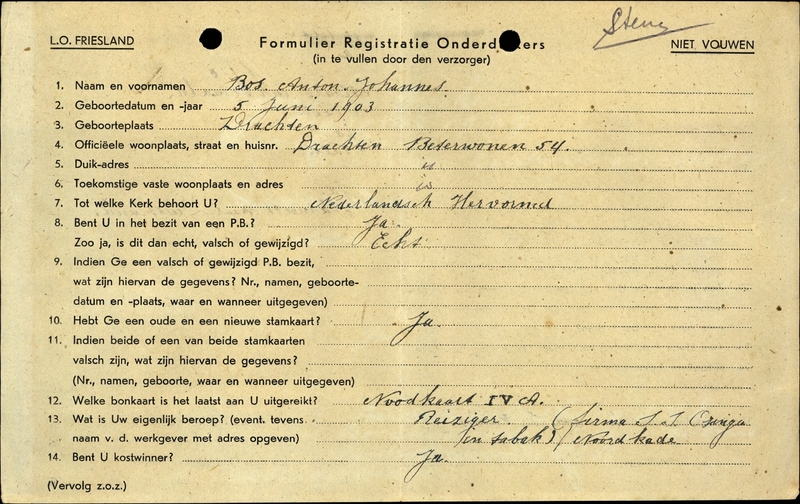 L.O. FRIESLAND
Formulier Registratie Onderd kers
(in te vullen door den verzorger)
NIET VOUWEN
1. Naam en voornamen Bos Anton Johannes.
2. Geboortedatum en -jaar 5 Juni 1903
3. Geboorteplaats Drachten
4. Officiëele woonplaats, straat en huisnr. Drachten Beterwonen 54.
5. Duik-adres
6. Toekomstige vaste woonplaats en adres
7. Tot welke Kerk behoort U? Nederlandsch Hervormd
8. Bent U in het bezit van een P.B.? Ja.
Zoo ja, is dit dan echt, valsch of gewijzigd? Echt
9. Indien Ge een valsch of gewijzigd P.B. bezit,
wat zijn hiervan de gegevens? Nr., namen, geboorte-
datum en -plaats, waar en wanneer uitgegeven)
10. Hebt Ge een oude en een nieuwe stamkaart? Ja.
11. Indien beide of een van beide stamkaarten
valsch zijn, wat zijn hiervan de gegevens?
(Nr., namen, geboorte, waar en wanneer uitgegeven)
12. Welke bonkaart is het laatst aan U uitgereikt? Noodkaart IV A.
13. Wat is Uw eigenlijk beroep? (event. tevens Reiziger. (firma
naam v. d. werkgever met adres opgeven) (in tabak) Noordkade
14. Bent U kostwinner? Ja.
(Vervolg z.o.z.)